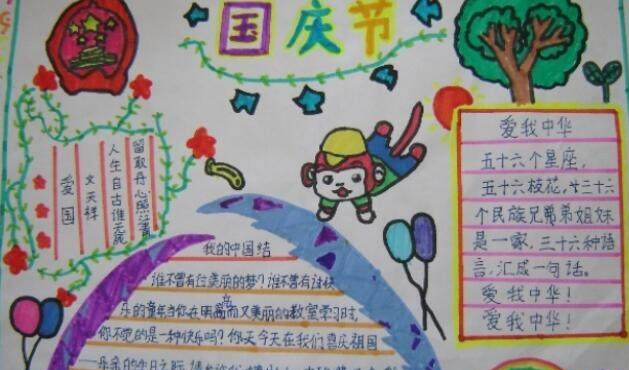 国庆节
爱国
文天祥
人生自古谁无死
留取丹心照汗青
爱我中华
五十六个星座,
五十六枝花,三十六
个民族兄弟姐妹
是一家,三十六种语
言,汇成一句话。
爱我中华!
爱我中华!
我的中国结
谁不曾有位美丽的梦?谁不曾有快
乐的童年当你在明亮而又美丽的教室学习时,
你不觉的是一种快乐吗?你天今天在我们喜庆祖国
的生日之际